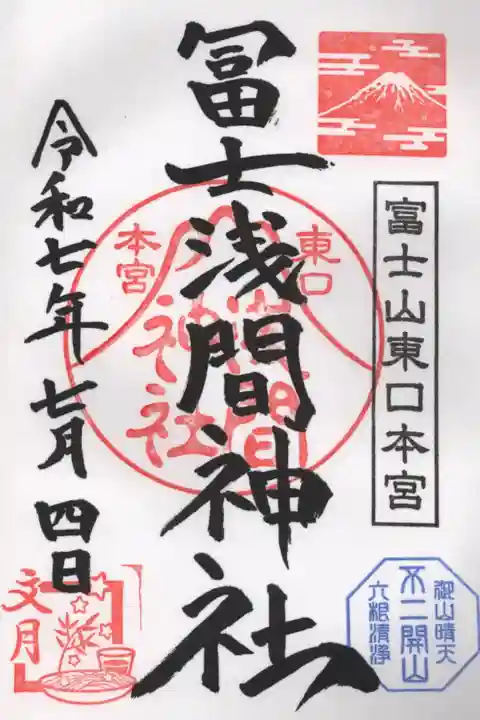 富士山東口本宮
冨士浅間神社
東口
本宮
浅間
神社
令和七年七月四日
文月
御山晴天
不二開山
六根清浄